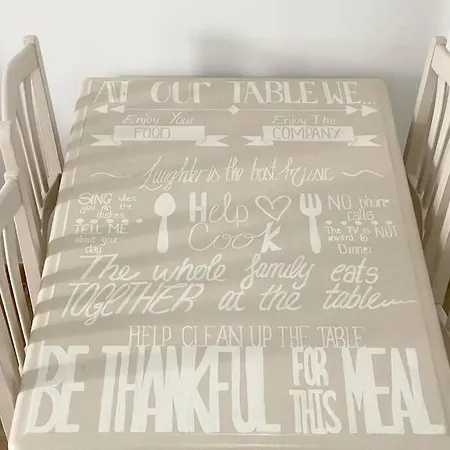 AT OUR TABLE WE...
Enjoy Your
FOOD
Enjoy The
COMPANY
Laughter is the best music
SING when
you do the
dishes
TELL ME
about your
day
Help
Cook
NO phone
calls
The TV is NOT
invited to
Dinner
The whole family eats
TOGETHER at the table
HELP CLEAN UP THE TABLE
BE THANKFUL FOR THIS MEAL